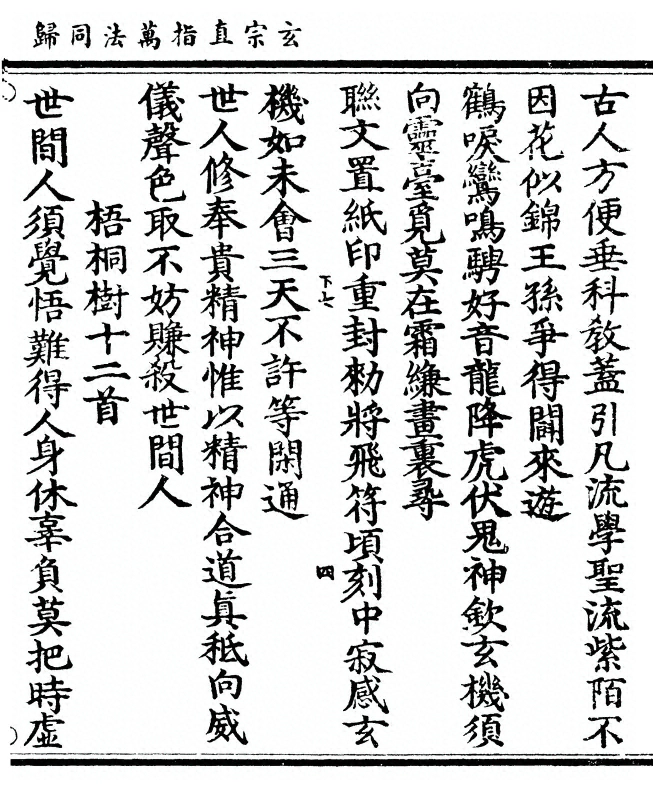 玄宗直指萬法同歸
古人方便垂科教蓋引凡流學聖流紫陌不
因花似錦王孫爭得闘來遊
鶴唳鸞鳴騁好音龍降虎伏鬼神欽玄機須
向靈臺覓莫在霜縑畫裏尋
聮文置紙印重封勑將飛符頃刻中寂感玄
下七
四
機如未會三天不許等閑通
世人修奉貴精神惟以精神合道眞秪向威
儀聲色取不妨賺殺世間人
梧桐樹十二首
世間人須覺悟難得人身休辜負莫把時虛